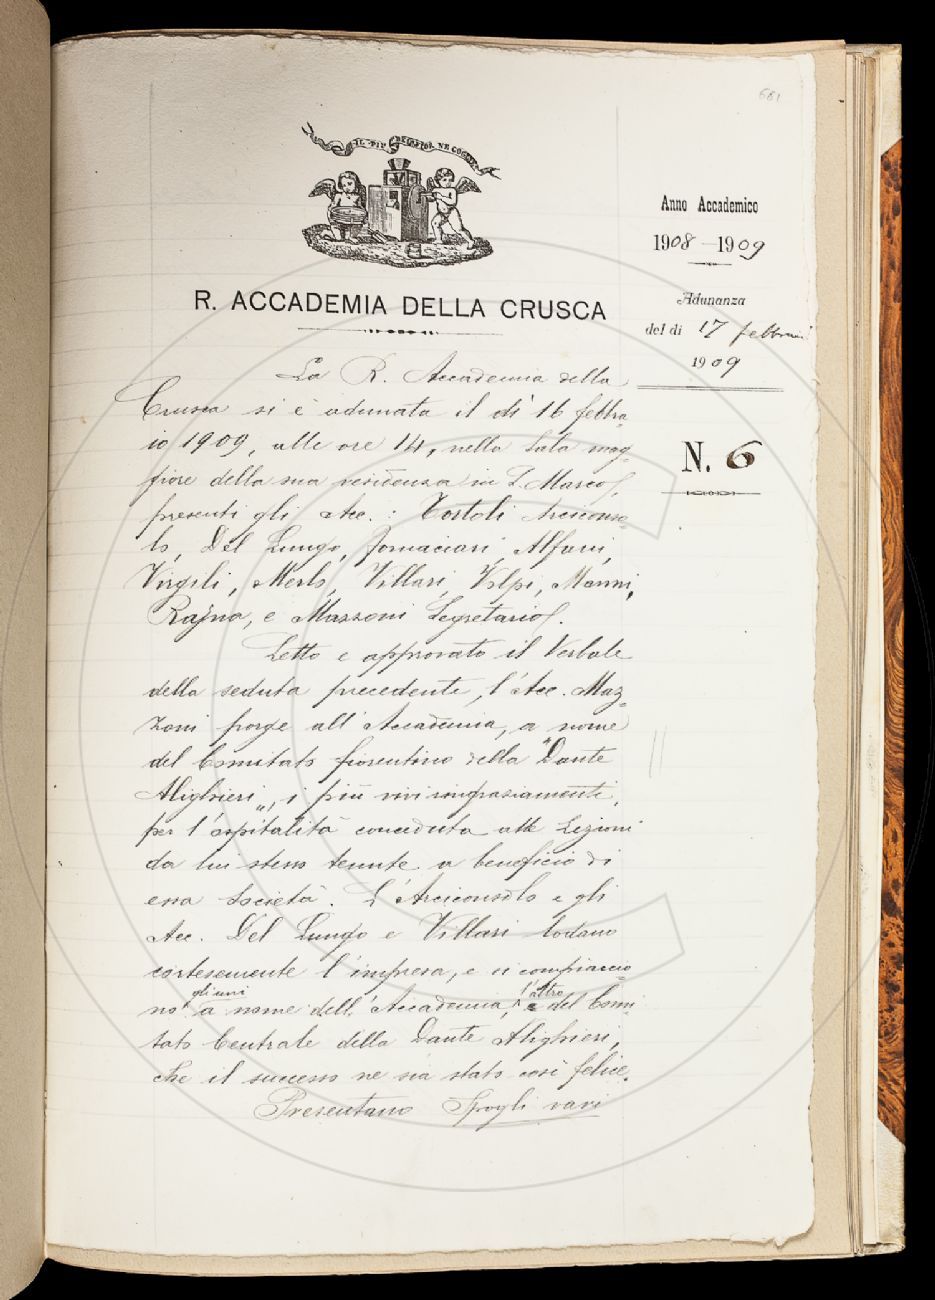 681
IL PIÙ BEL FIOR NE COGLIE
Anno Accademico
1908-1909
R. ACCADEMIA DELLA CRUSCA
Adunanza
del dì 17 febbraio
1909
N. 6
La R. Accademia della
Crusca si è adunata il dì 16 febbra-
io 1909, alle ore 14, nella Sala mag-
giore della sua residenza in S. Marco,
presenti gli Acc.: Tortoli Arciconso-
lo, Del Lungo, Fornaciari, Alfani,
Virgili, Merlo, Villari, Volpi, Manni,
Rajna, e Mazzoni Segretario.
Letto e approvato il Verbale
della seduta precedente, l'Acc. Maz-
zoni porge all'Accademia, a nome
del Comitato fiorentino della "Dante
Alighieri", i più vivi ringraziamenti,
per l'ospitalità conceduta alle Lezioni
da lui stesso tenute a beneficio di
essa Società. L'Arciconsolo e gli
Acc. Del Lungo e Villari lodano
cortesemente l'impresa, e si compiaccio-
no, gli uni a nome dell'Accademia, l'altro e del Comi-
tato Centrale della Dante Alighieri,
che il successo ne sia stato così felice.
Presentano Spogli vari